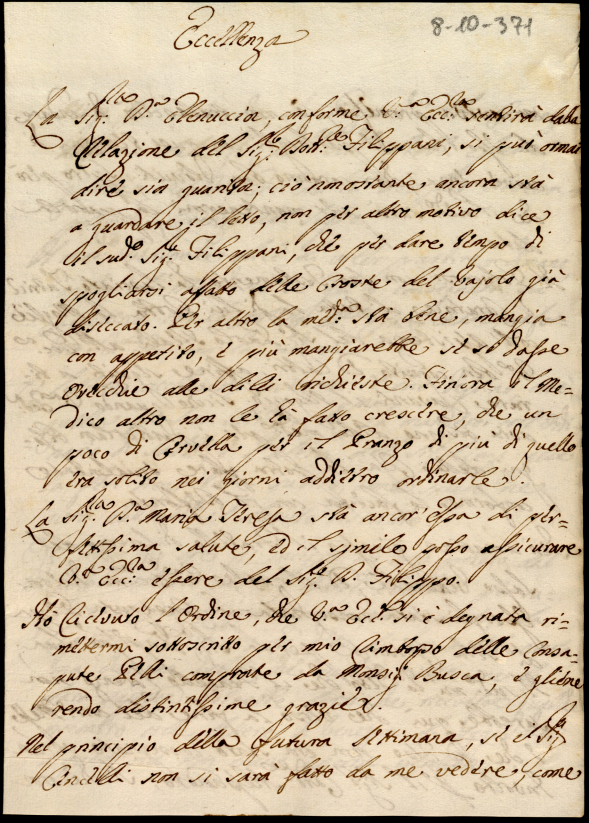 8-10-371
Eccellenza
La Sig.ra D.a Elenuccia, conforme V.a Ecc.za sentirà dalla
Relazione del Sig.r Dott.re Filippani, si può ormai
dire sia guarita; ciò nonostante ancora stà
a guardare il letto, non per altro motivo dice
il sud.o Sig.r Filippani, che per dare tempo di
spogliarsi affatto delle Croste del Vajolo già
disiccato. Per altro la med.ma stà bene, mangia
con appetito, e più mangiarebbe se se dasse
orecchie alle di lei richieste. Finora il Me=
dico altro non le hà fatto crescere, che un
poco di Cervella per il Pranzo di più di quello
era solito nei giorni addietro ordinarle.
La Sig.ra D.a Maria Teresa stà ancor'Essa di per=
fettissima salute, ed il simile posso assicurare
V.a Ecc.za essere del Sig.r D. Filippo.
Hò ricevuto l'Ordine, che V.a Ecc.za si è degnata ri=
mettermi sottoscritto per mio rimborso delle Consa=
pute Pelli comprate da Monsig.r Busca, e gliene
rendo distintissime grazie.
Nel principio della futura Settimana, se il Sig.r
non si sarà fatto da me vedere, come